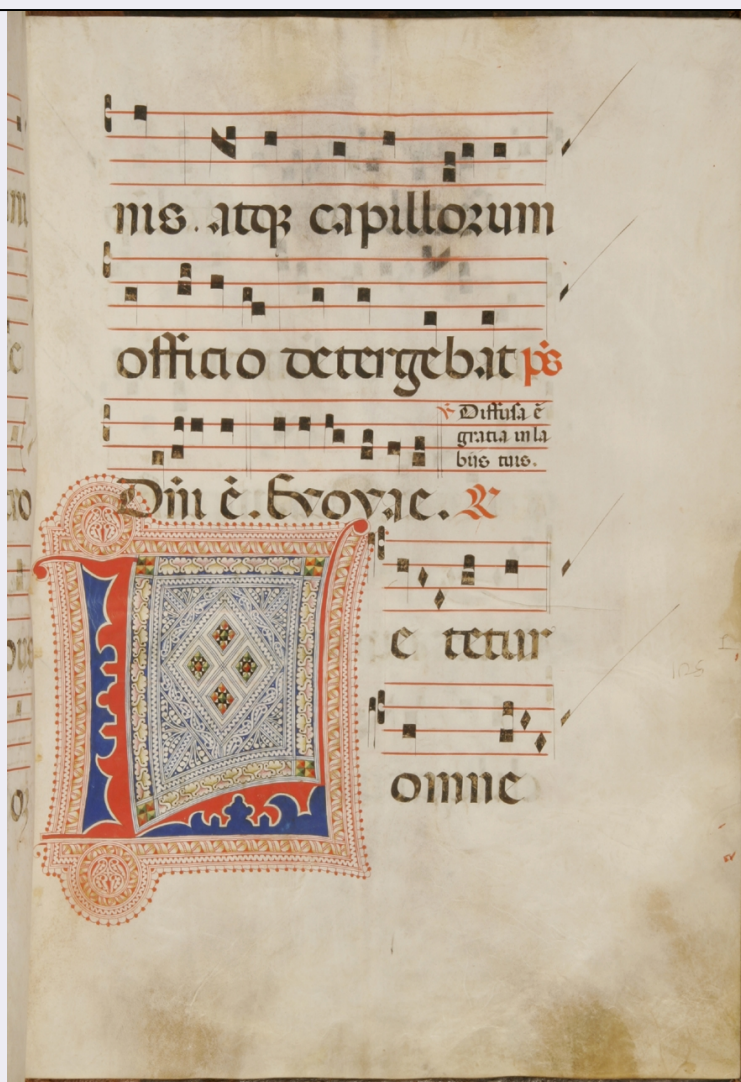 nis. atqꝫ capilloꝛum
officio detergebat p̄s
℣ Diffusa ē
gratia in la
biis tuis.
Dñi ē. Evovae. ℟
L
e tetur
omne